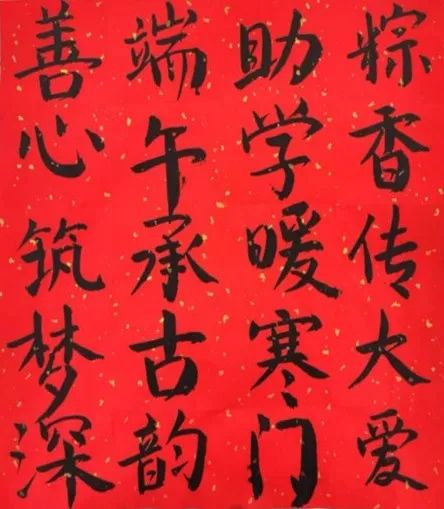 粽香传大爱
助学暖寒门
端午承古韵
善心筑梦深